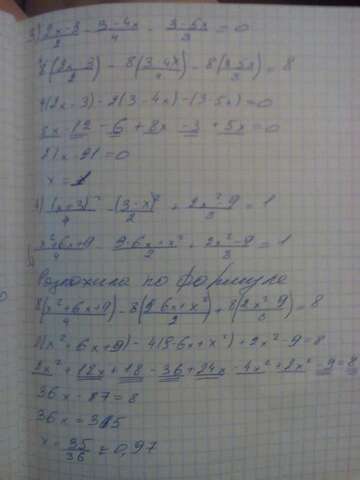 3) (2x-3)/2 - (3-4x)/4 - (3-5x)/8 = 0
8(2x-3)/2 - 8(3-4x)/4 - 8(3-5x)/8 = 8
4(2x-3) - 2(3-4x) - (3-5x) = 0
8x - 12 - 6 + 8x - 3 + 5x = 0
21x - 21 = 0
x = 1
4) (x+3)²/4 - (3-x)²/2 + (2x²-9)/8 = 1
(x²+6x+9)/4 - (9-6x+x²)/2 + (2x²-9)/8 = 1
Разложила по формуле
8(x²+6x+9)/4 - 8(9-6x+x²)/2 + 8(2x²-9)/8 = 8
2(x²+6x+9) - 4(9-6x+x²) + 2x²-9 = 8
2x² + 12x + 18 - 36 + 24x - 4x² + 2x² - 9 = 8
36x - 87 = 8
36x = 35
x = 35/36 = 0,97